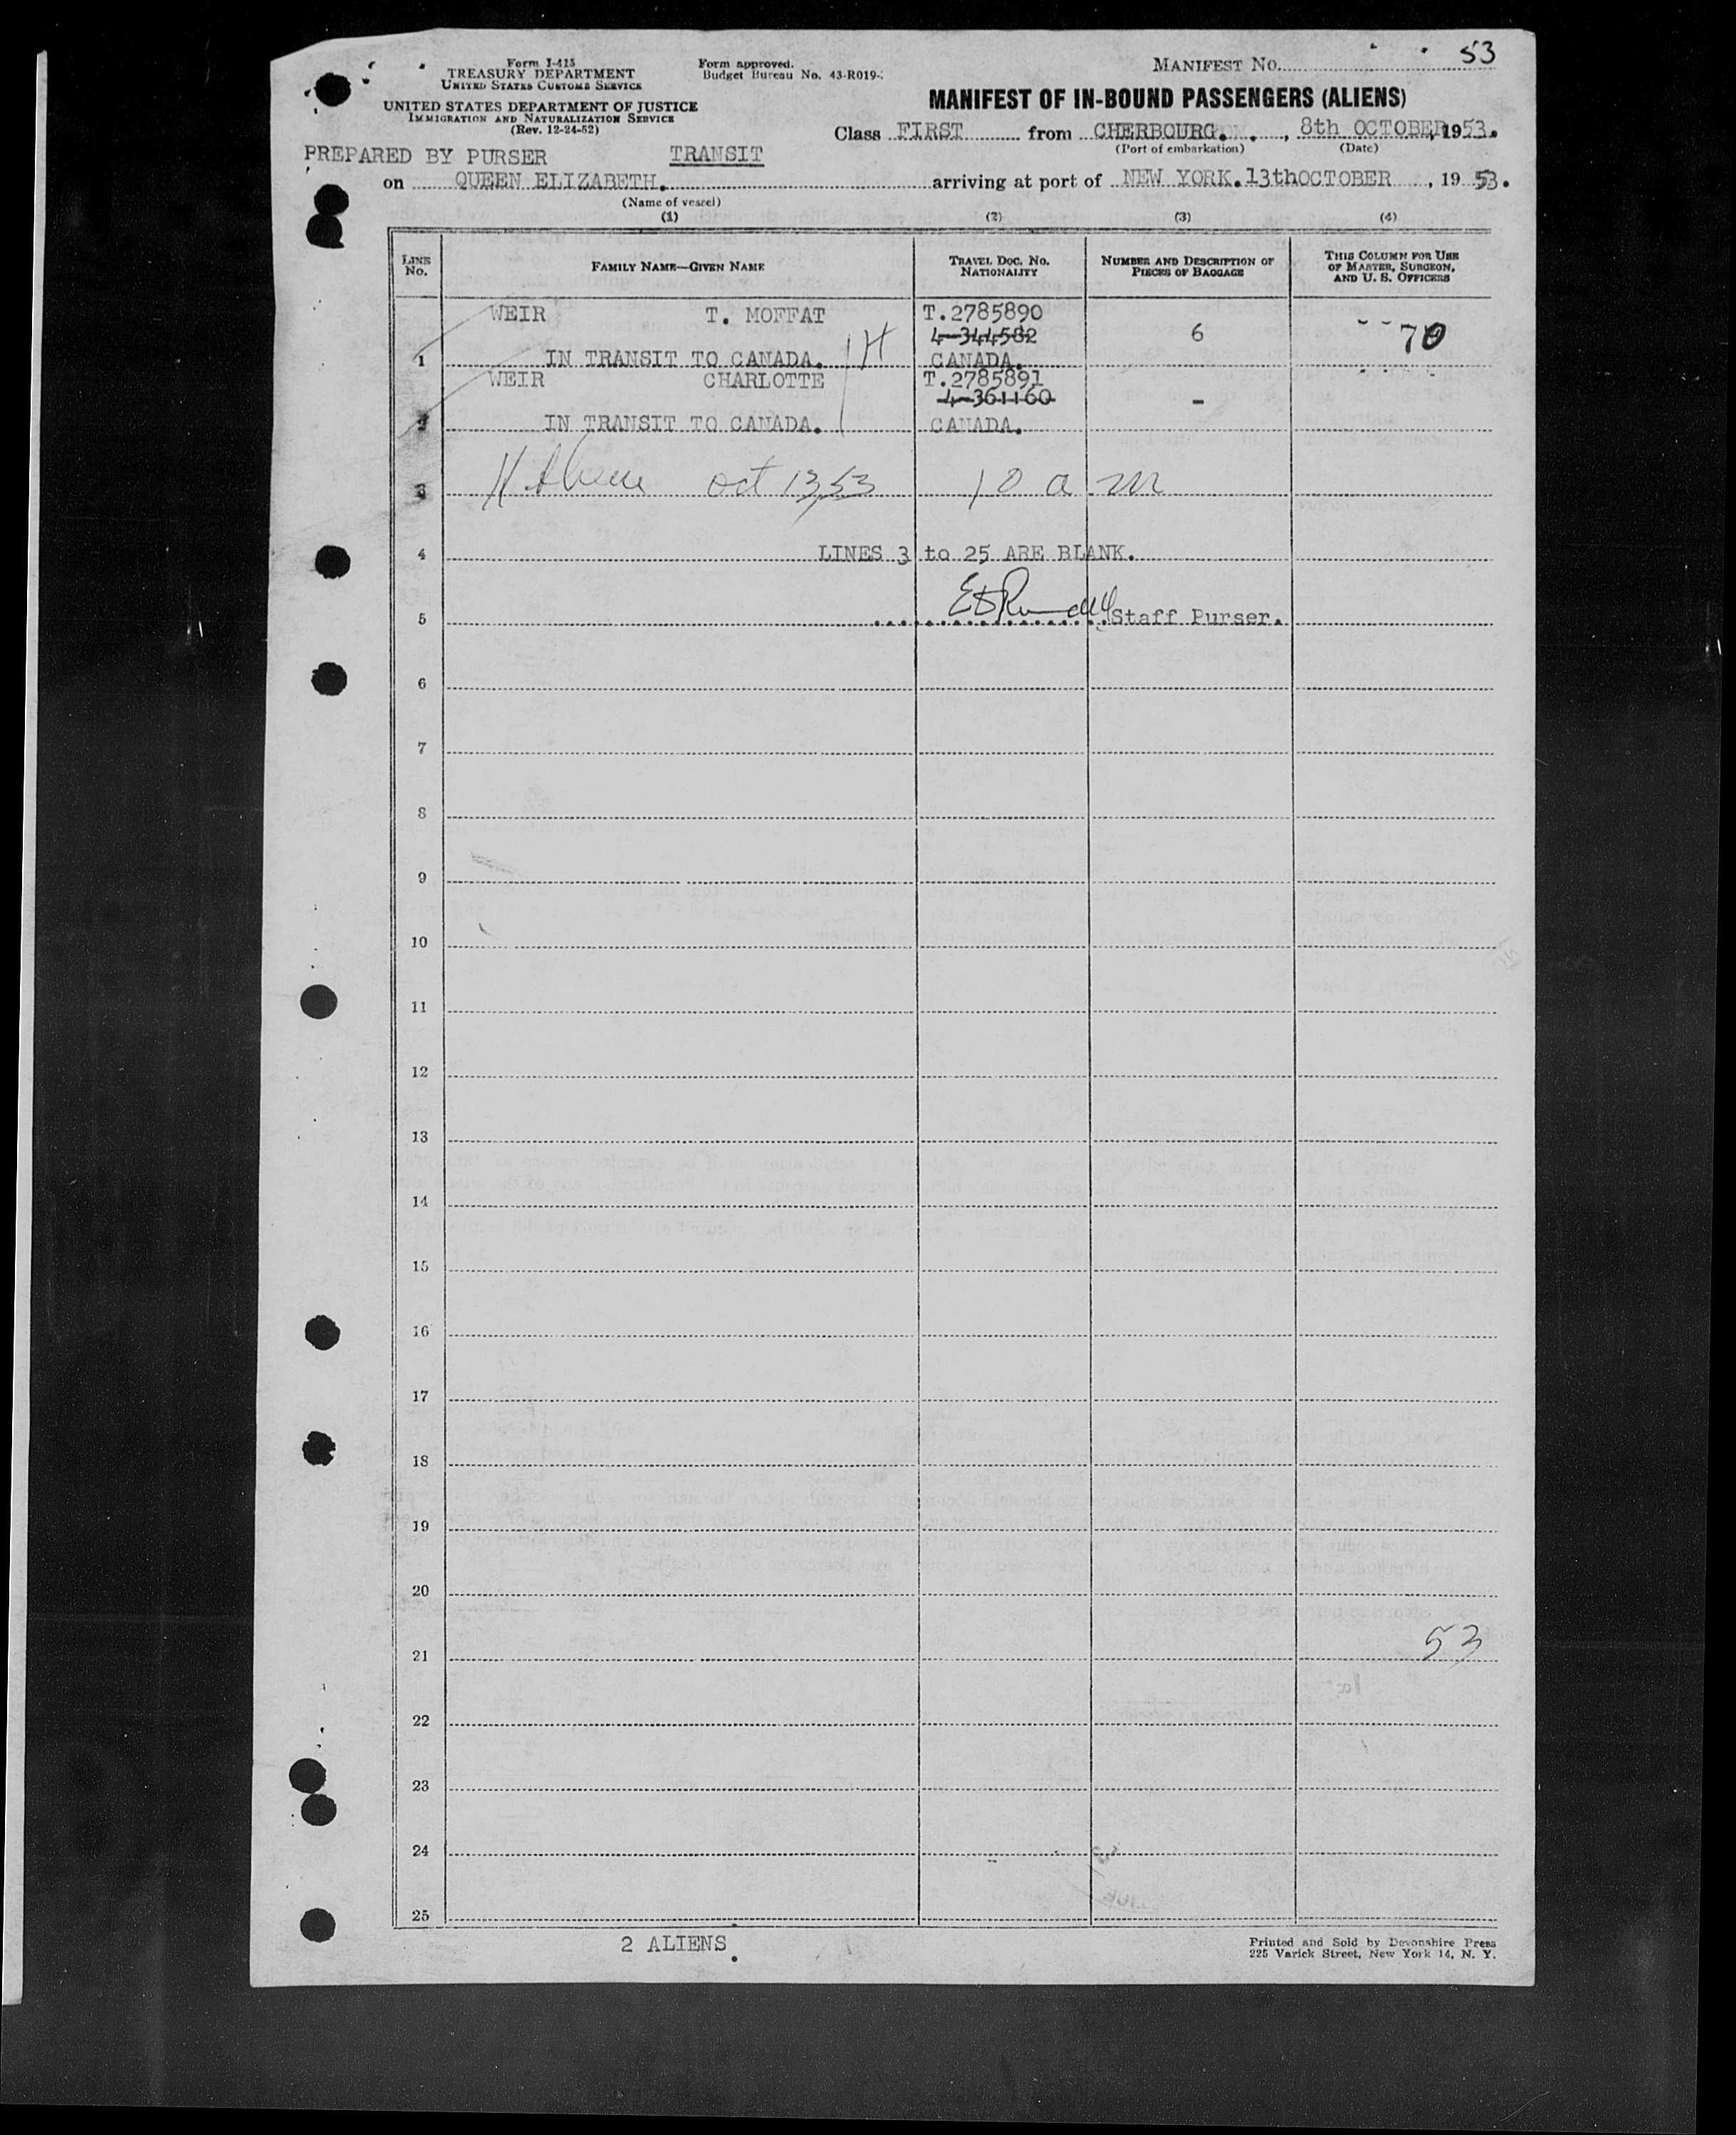 53
Form I-415
TREASURY DEPARTMENT
UNITED STATES CUSTOMS SERVICE
Form approved.
Budget Bureau No. 43-R019-
MANIFEST No.
UNITED STATES DEPARTMENT OF JUSTICE
IMMIGRATION AND NATURALIZATION SERVICE
(Rev. 12-24-52)
MANIFEST OF IN-BOUND PASSENGERS (ALIENS)
Class FIRST from CHERBOURG. , 8th OCTOBER, 1953.
(Port of embarkation) (Date)
PREPARED BY PURSER TRANSIT
on QUEEN ELIZABETH. arriving at port of NEW YORK. 13thOCTOBER , 19 53.
(Name of vessel)
(1) (2) (3) (4)
LINE No. FAMILY NAME—GIVEN NAME TRAVEL DOC. No. NATIONALITY NUMBER AND DESCRIPTION OF PIECES OF BAGGAGE THIS COLUMN FOR USE OF MASTER, SURGEON, AND U. S. OFFICERS
WEIR T. MOFFAT T.2785890
4-344582 6 70
1 IN TRANSIT TO CANADA. H CANADA.
WEIR CHARLOTTE T.2785891
4-361160 -
2 IN TRANSIT TO CANADA. CANADA.
3 Oct 13,53 10 a m
4 LINES 3 to 25 ARE BLANK.
5 Staff Purser.
6
7
8
9
10
11
12
13
14
15
16
17
18
19
20
53
21
22
23
24
25
2 ALIENS.
Printed and Sold by Devonshire Press
225 Varick Street, New York 14, N. Y.